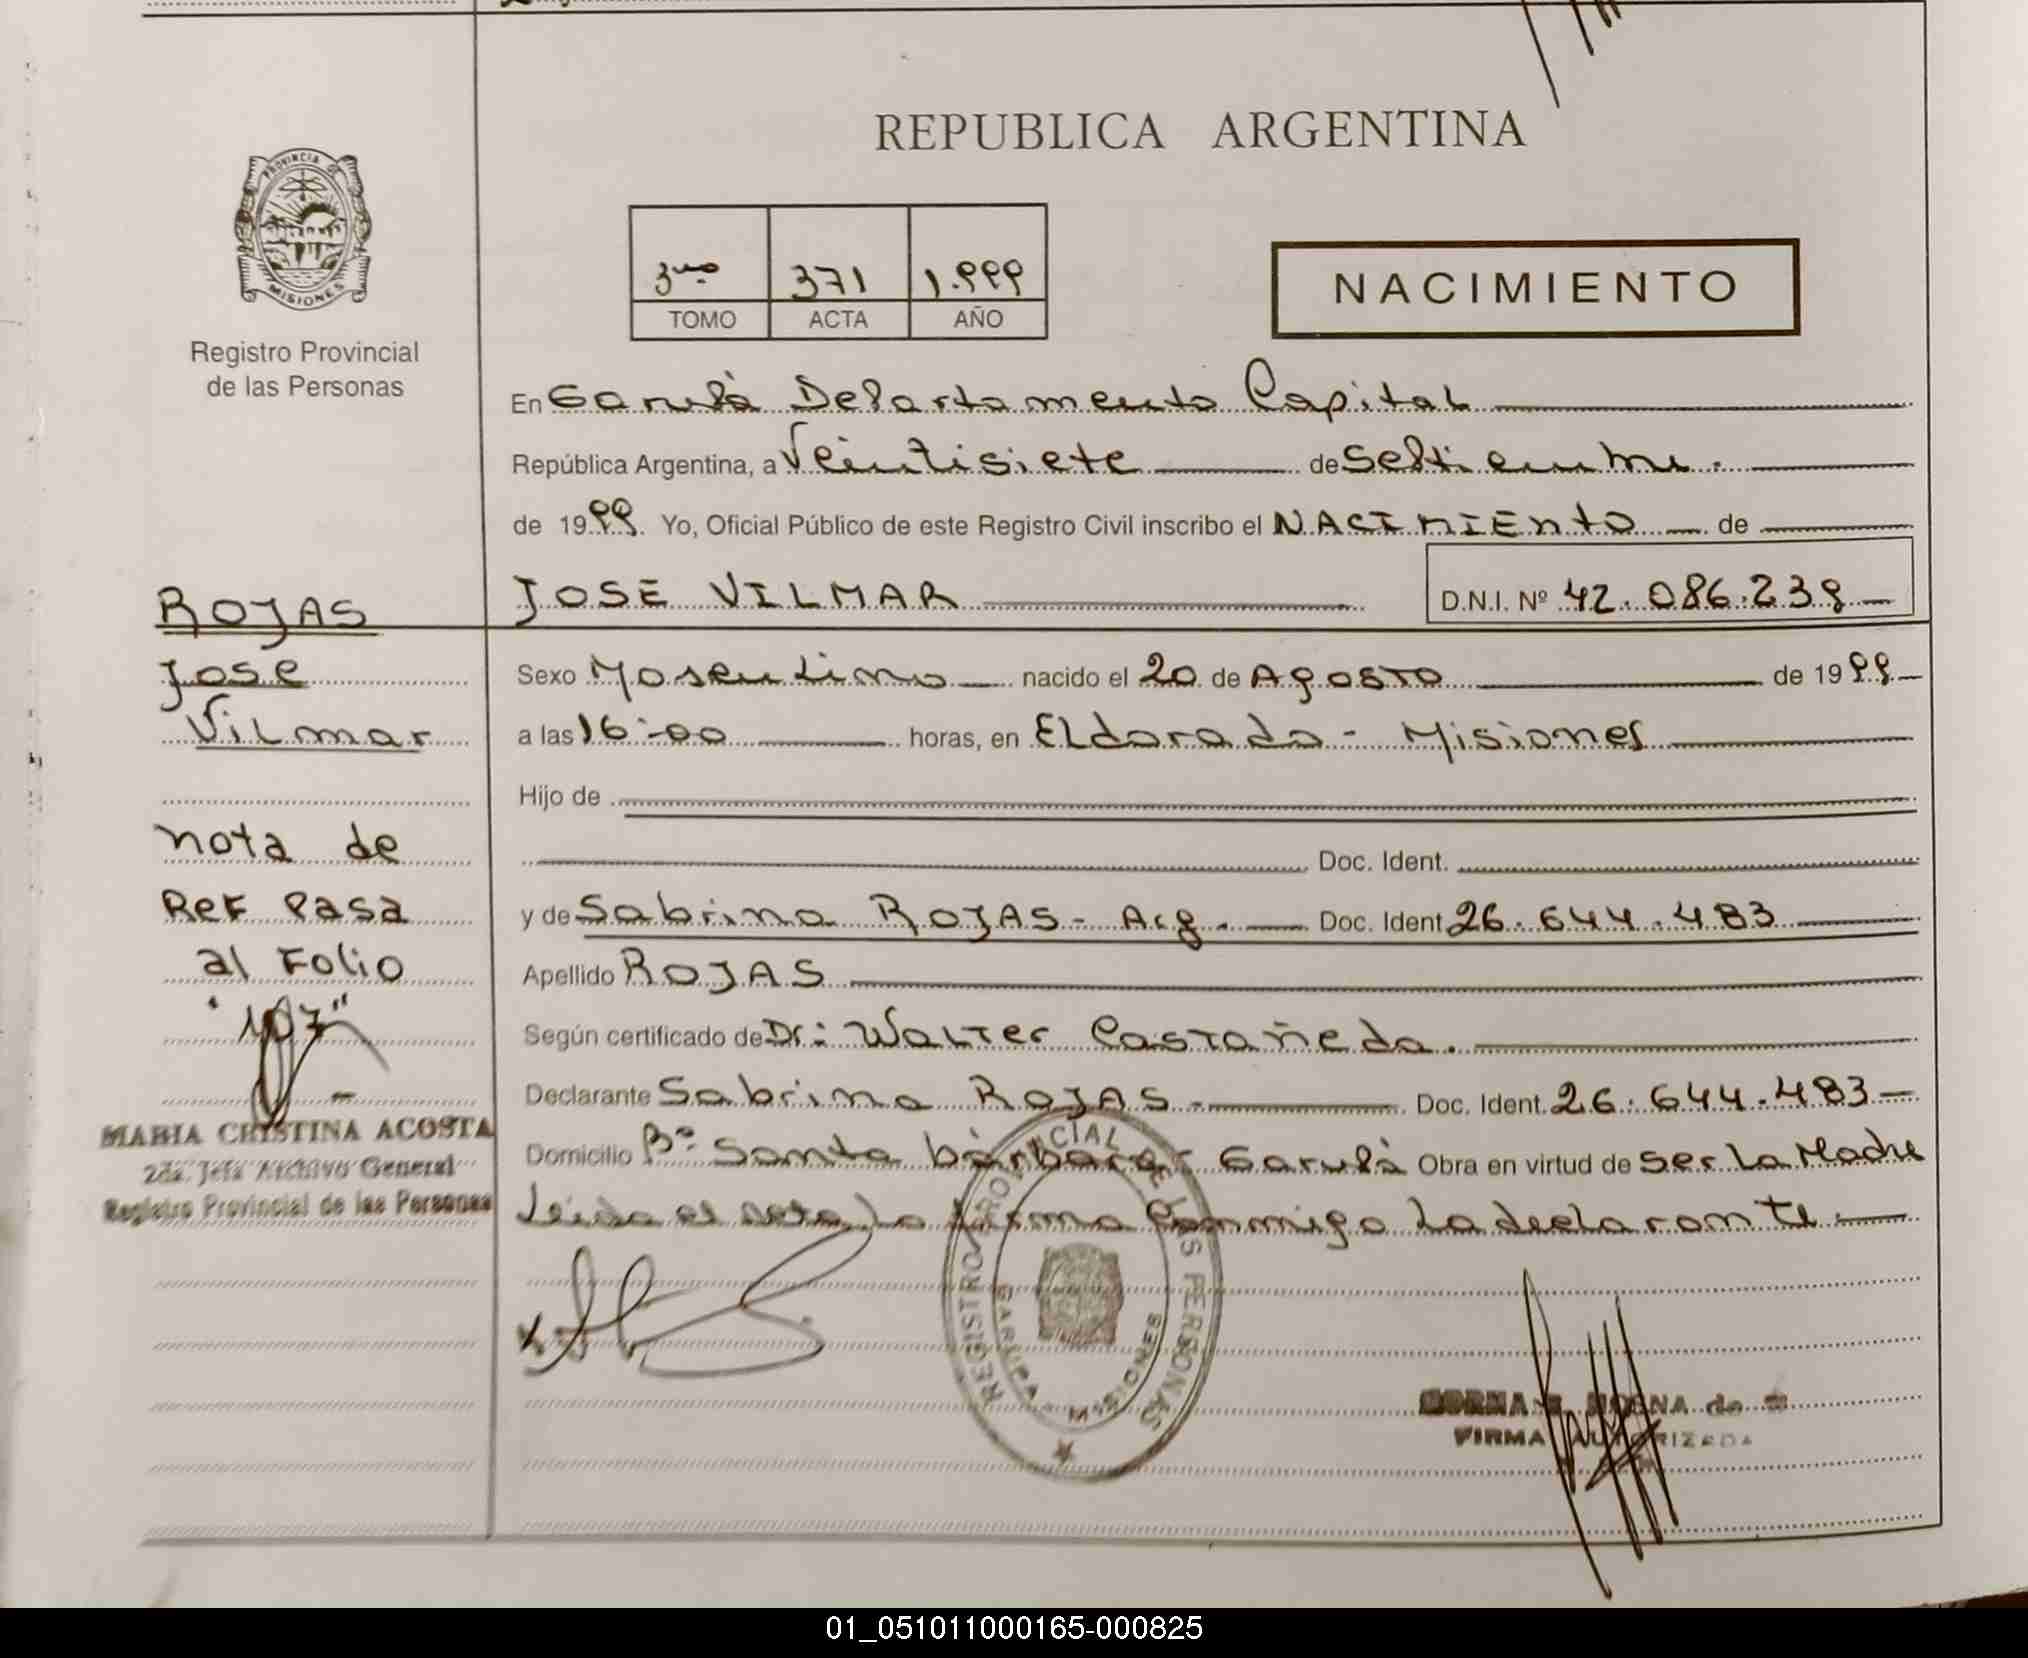 REPUBLICA ARGENTINA
PROVINCIA DE
MISIONES
Registro Provincial
de las Personas
3ro 371 1.999
TOMO ACTA AÑO
NACIMIENTO
En Garupá Departamento Capital
República Argentina, a Veintisiete de Septiembre.
de 1999. Yo, Oficial Público de este Registro Civil inscribo el NACIMIENTO de
JOSE VILMAR D.N.I. Nº 42.086.239
ROJAS
Jose
Vilmar
Sexo Masculino nacido el 20 de Agosto de 1999
a las 16:00 horas, en Eldorado - Misiones
Hijo de
Doc. Ident.
y de Sabrina ROJAS - Arg. Doc. Ident. 26.644.483
Apellido ROJAS
Según certificado de Dr: Walter Castañeda.
Declarante Sabrina ROJAS - Doc. Ident. 26.644.483
Domicilio Bº Santa bárbara Garupá Obra en virtud de Ser la Madre
Leida el acta, la firma conmigo la declarante
nota de
Ref pasa
al Folio
"107"
MARIA CRISTINA ACOSTA
2da. Jefa Archivo General
Registro Provincial de las Personas
REGISTRO PROVINCIAL DE LAS PERSONAS
GARUPA - MISIONES
FIRMA AUTORIZADA
01_051011000165-000825